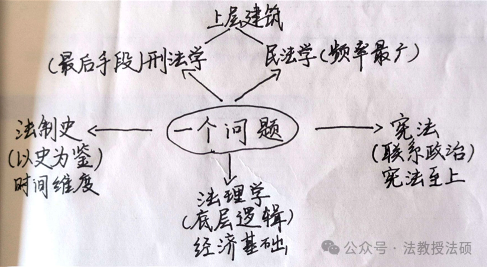 上层建筑
(最后手段)刑法学
民法学(频率最广)
法制史
(以史为鉴)
时间维度
一个问题
宪法
(联系政治)
宪法至上
法理学
(底层逻辑)
经济基础
公众号·法教授法硕